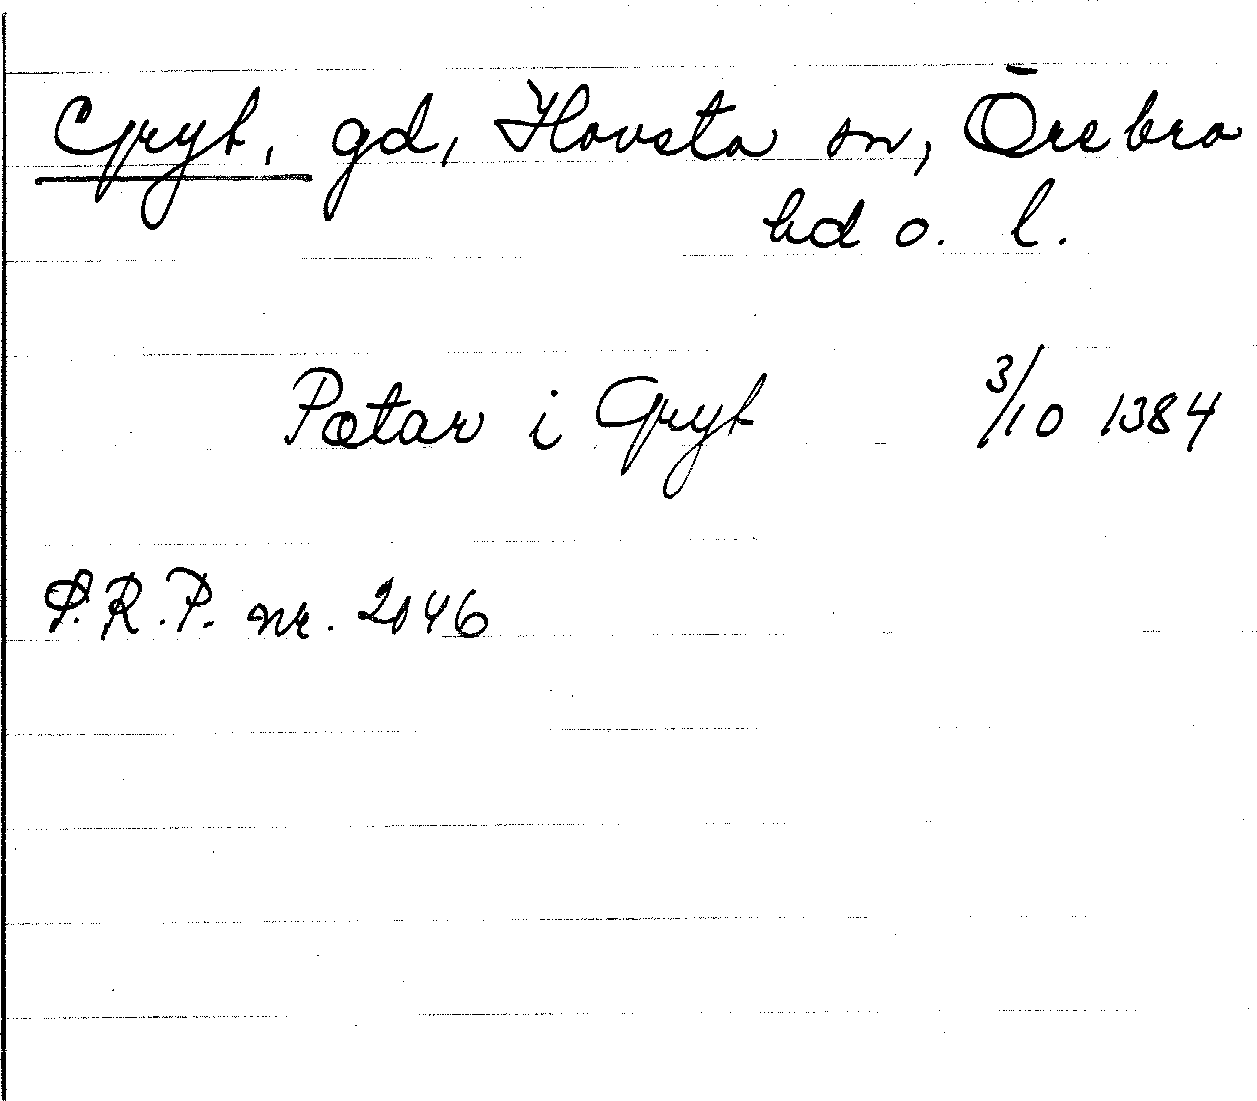 Gryt, gd, Hovsta sn, Örebro
hd o. l.
Petar i Gryt 3/10 1384
S.R.P. nr. 2046